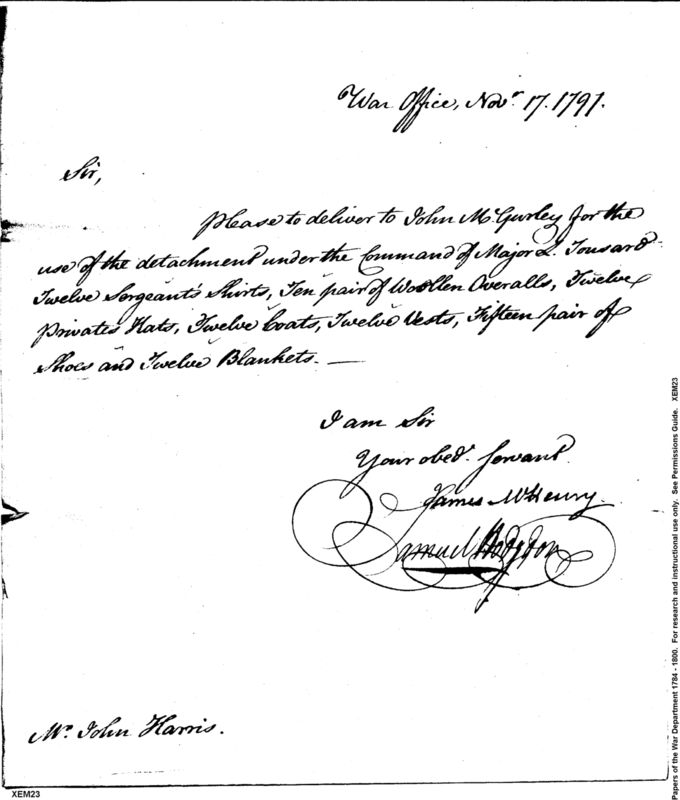 War Office, Novr. 17. 1797.
Sir,
Please to deliver to John McGurley for the
use of the detachment under the Command of Major L. Tousard
Twelve Sergeant's Shirts, Ten pair of Woollen Overalls, Twelve
Privates Hats, Twelve Coats, Twelve Vests, Fifteen pair of
Shoes and Twelve Blankets. —
I am Sir
Your obedt. Servant
James McHenry.
Samuel Hodgdon
Mr. John Harris.
XEM23
Papers of the War Department 1784 - 1800. For research and instructional use only. See Permissions Guide. XEM23